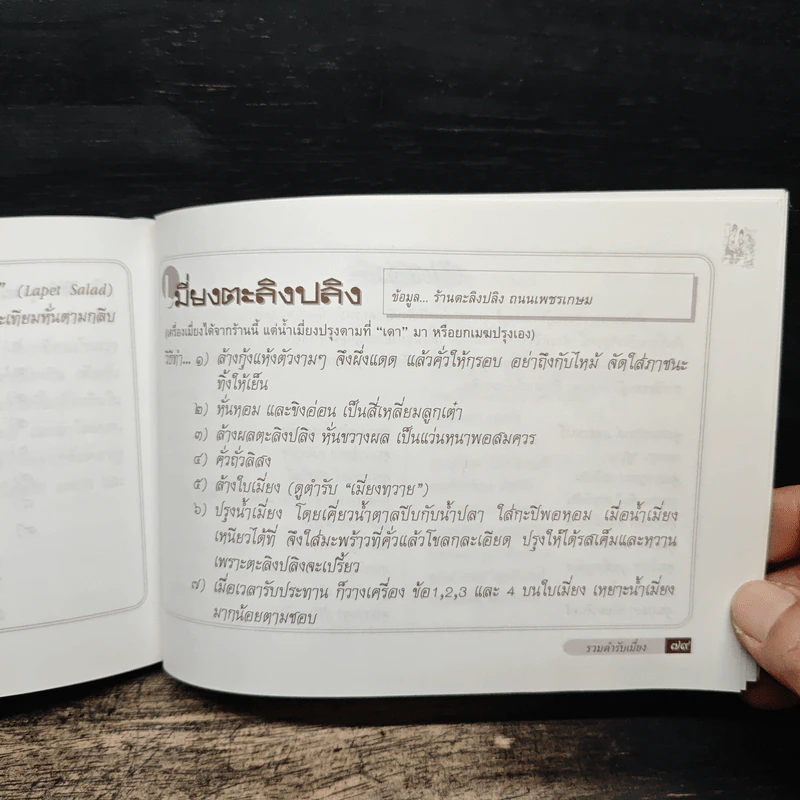 ” (Lapet Salad)
ะเทียมหั่นตามกลีบ
เมี่ยงตะลิงปลิง
ข้อมูล... ร้านตะลิงปลิง ถนนเพชรเกษม
(เครื่องเมี่ยงได้จากร้านนี้ แต่น้ำเมี่ยงปรุงตามที่ “เดา” มา หรือยกเมฆปรุงเอง)
วิธีทำ... ๑) ล้างกุ้งแห้งตัวงามๆ จึงผึ่งแดด แล้วคั่วให้กรอบ อย่าถึงกับไหม้ จัดใส่ภาชนะ
ทิ้งให้เย็น
๒) หั่นหอม และขิงอ่อน เป็นสี่เหลี่ยมลูกเต๋า
๓) ล้างผลตะลิงปลิง หั่นขวางผล เป็นแว่นหนาพอสมควร
๔) คั่วถั่วลิสง
๕) ล้างใบเมี่ยง (ดูตำรับ “เมี่ยงทวาย”)
๖) ปรุงน้ำเมี่ยง โดยเคี่ยวน้ำตาลปีบกับน้ำปลา ใส่กะปิพอหอม เมื่อน้ำเมี่ยง
เหนียวได้ที่ จึงใส่มะพร้าวที่คั่วแล้วโขลกละเอียด ปรุงให้ได้รสเค็มและหวาน
เพราะตะลิงปลิงจะเปรี้ยว
๗) เมื่อเวลารับประทาน ก็วางเครื่อง ข้อ1,2,3 และ 4 บนใบเมี่ยง เหยาะน้ำเมี่ยง
มากน้อยตามชอบ
รวมตำรับเมี่ยง ๗๙